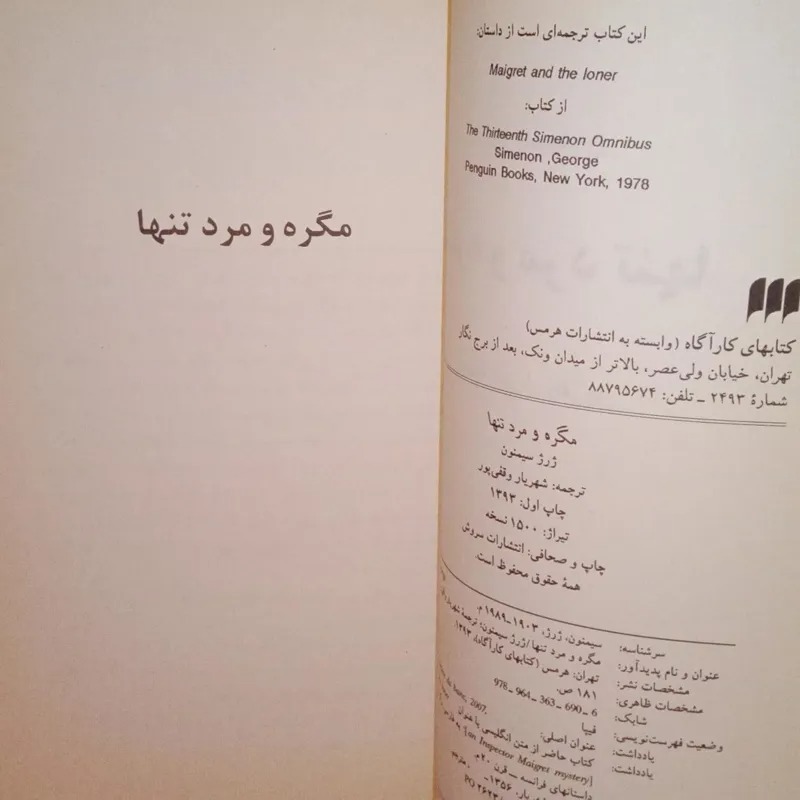 مگره و مرد تنها
این کتاب ترجمه‌ای است از داستان:
Maigret and the loner
از کتاب:
The Thirteenth Simenon Omnibus
Simenon ,George
Penguin Books, New York, 1978
کتابهای کارآگاه (وابسته به انتشارات هرمس)
تهران، خیابان ولی‌عصر، بالاتر از میدان ونک، بعد از برج نگار
شمارهٔ ۲۴۹۳ ـ تلفن: ۸۸۷۹۵۶۷۴
مگره و مرد تنها
ژرژ سیمنون
ترجمه: شهریار وقفی‌پور
چاپ اول: ۱۳۹۳
تیراژ: ۱۵۰۰ نسخه
چاپ و صحافی: انتشارات سروش
همهٔ حقوق محفوظ است.
سرشناسه: سیمنون، ژرژ، ۱۹۰۳ـ۱۹۸۹ م.
عنوان و نام پدیدآور: مگره و مرد تنها/ژرژ سیمنون؛ ترجمهٔ شهریار
مشخصات نشر: تهران: هرمس (کتابهای کارآگاه)، ۱۳۹۳.
مشخصات ظاهری: ۱۸۱ ص.
شابک: 978 ـ 964 ـ 363 ـ 690 ـ 6
وضعیت فهرست‌نویسی: فیپا
یادداشت: عنوان اصلی: 2007.
یادداشت: کتاب حاضر از متن انگلیسی با عنوان
[an Inspector Maigret mystery] به فارسی
داستانهای فرانسه ــ قرن ۲۰م.
۱۳۵۶ـ